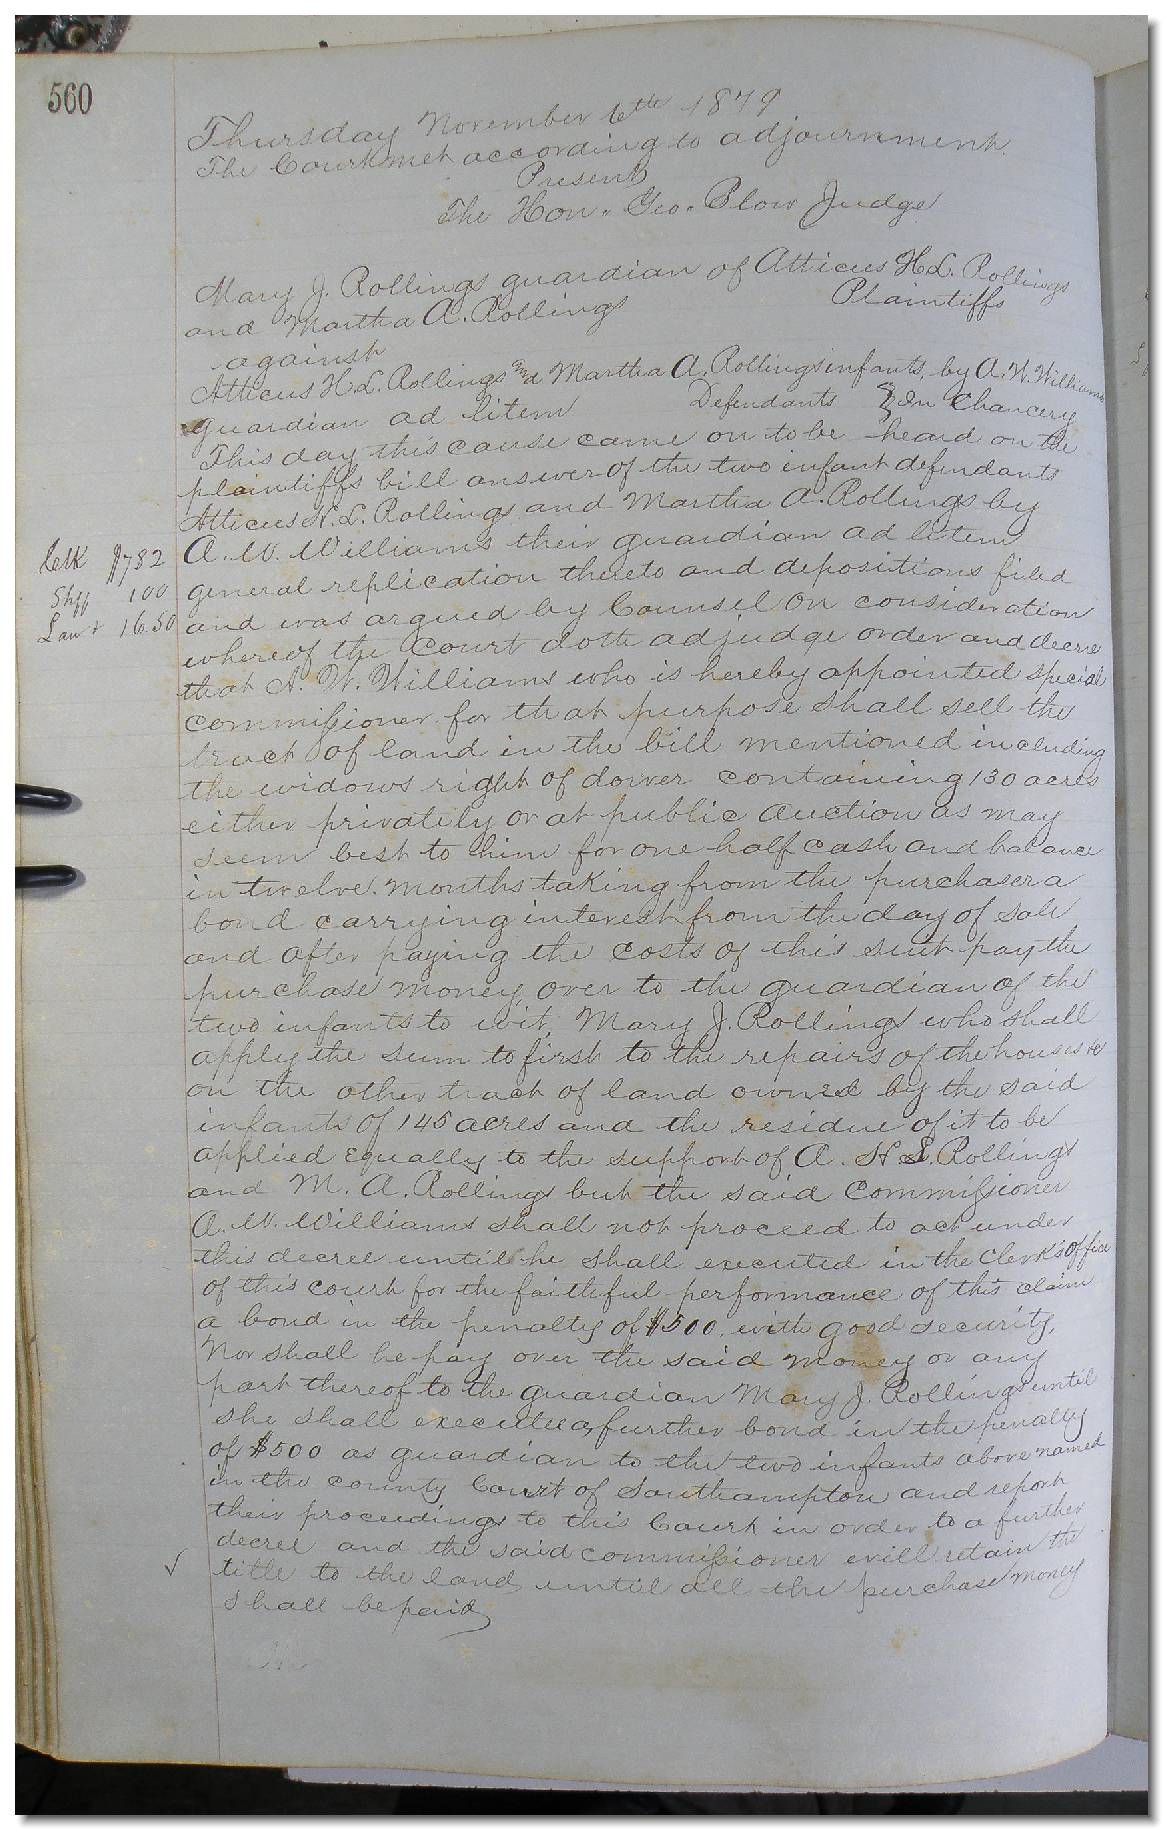 560
Thursday November 6th 1879
The Court met according to adjournment.
Present
The Hon. Geo. Blow Judge
Mary J. Rollings guardian of Atticus H.L. Rollings
and Martha A. Rollings Plaintiffs
against
Atticus H.L. Rollings and Martha A. Rollings infants, by A.W. Williams
guardian ad litem Defendants } In Chancery
This day this cause came on to be heard on the
plaintiffs bill answer of the two infant defendants
Atticus H. L. Rollings and Martha A. Rollings by
Celk $7 82 A. W. Williams their guardian ad litem
Shff 1 00 general replication thereto and depositions filed
Law r 16.50 and was argued by Counsel On consideration
whereof the Court doth adjudge order and decree
that A. W. Williams who is hereby appointed special
commissioner for that purpose shall sell the
tract of land in the bill mentioned including
the widows right of dower containing 130 acres
either privately or at public auction as may
seem best to him for one half cash and balance
in twelve months taking from the purchaser a
bond carrying interest from the day of sale
and after paying the costs of this suit pay the
purchase money over to the guardian of the
two infants to wit, Mary J. Rollings who shall
apply the sum to first to the repairs of the houses &c
on the other tract of land owned by the said
infants of 145 acres and the residue of it to be
applied equally to the support of A. H. L. Rollings
and M. A. Rollings but the said Commissioner
A. W. Williams shall not proceed to act under
this decree until he shall executed in the Clerk's office
of this court for the faithful performance of this claim
a bond in the penalty of $500. with good security,
Nor shall he pay over the said money or any
part thereof to the guardian Mary J. Rollings until
she shall execute a further bond in the penalty
of $500 as guardian to the two infants above named
in the county Court of Southampton and report
their proceedings to this Court in order to a further
decree and the said commissioner will retain the
title to the land until all the purchase money
shall be paid